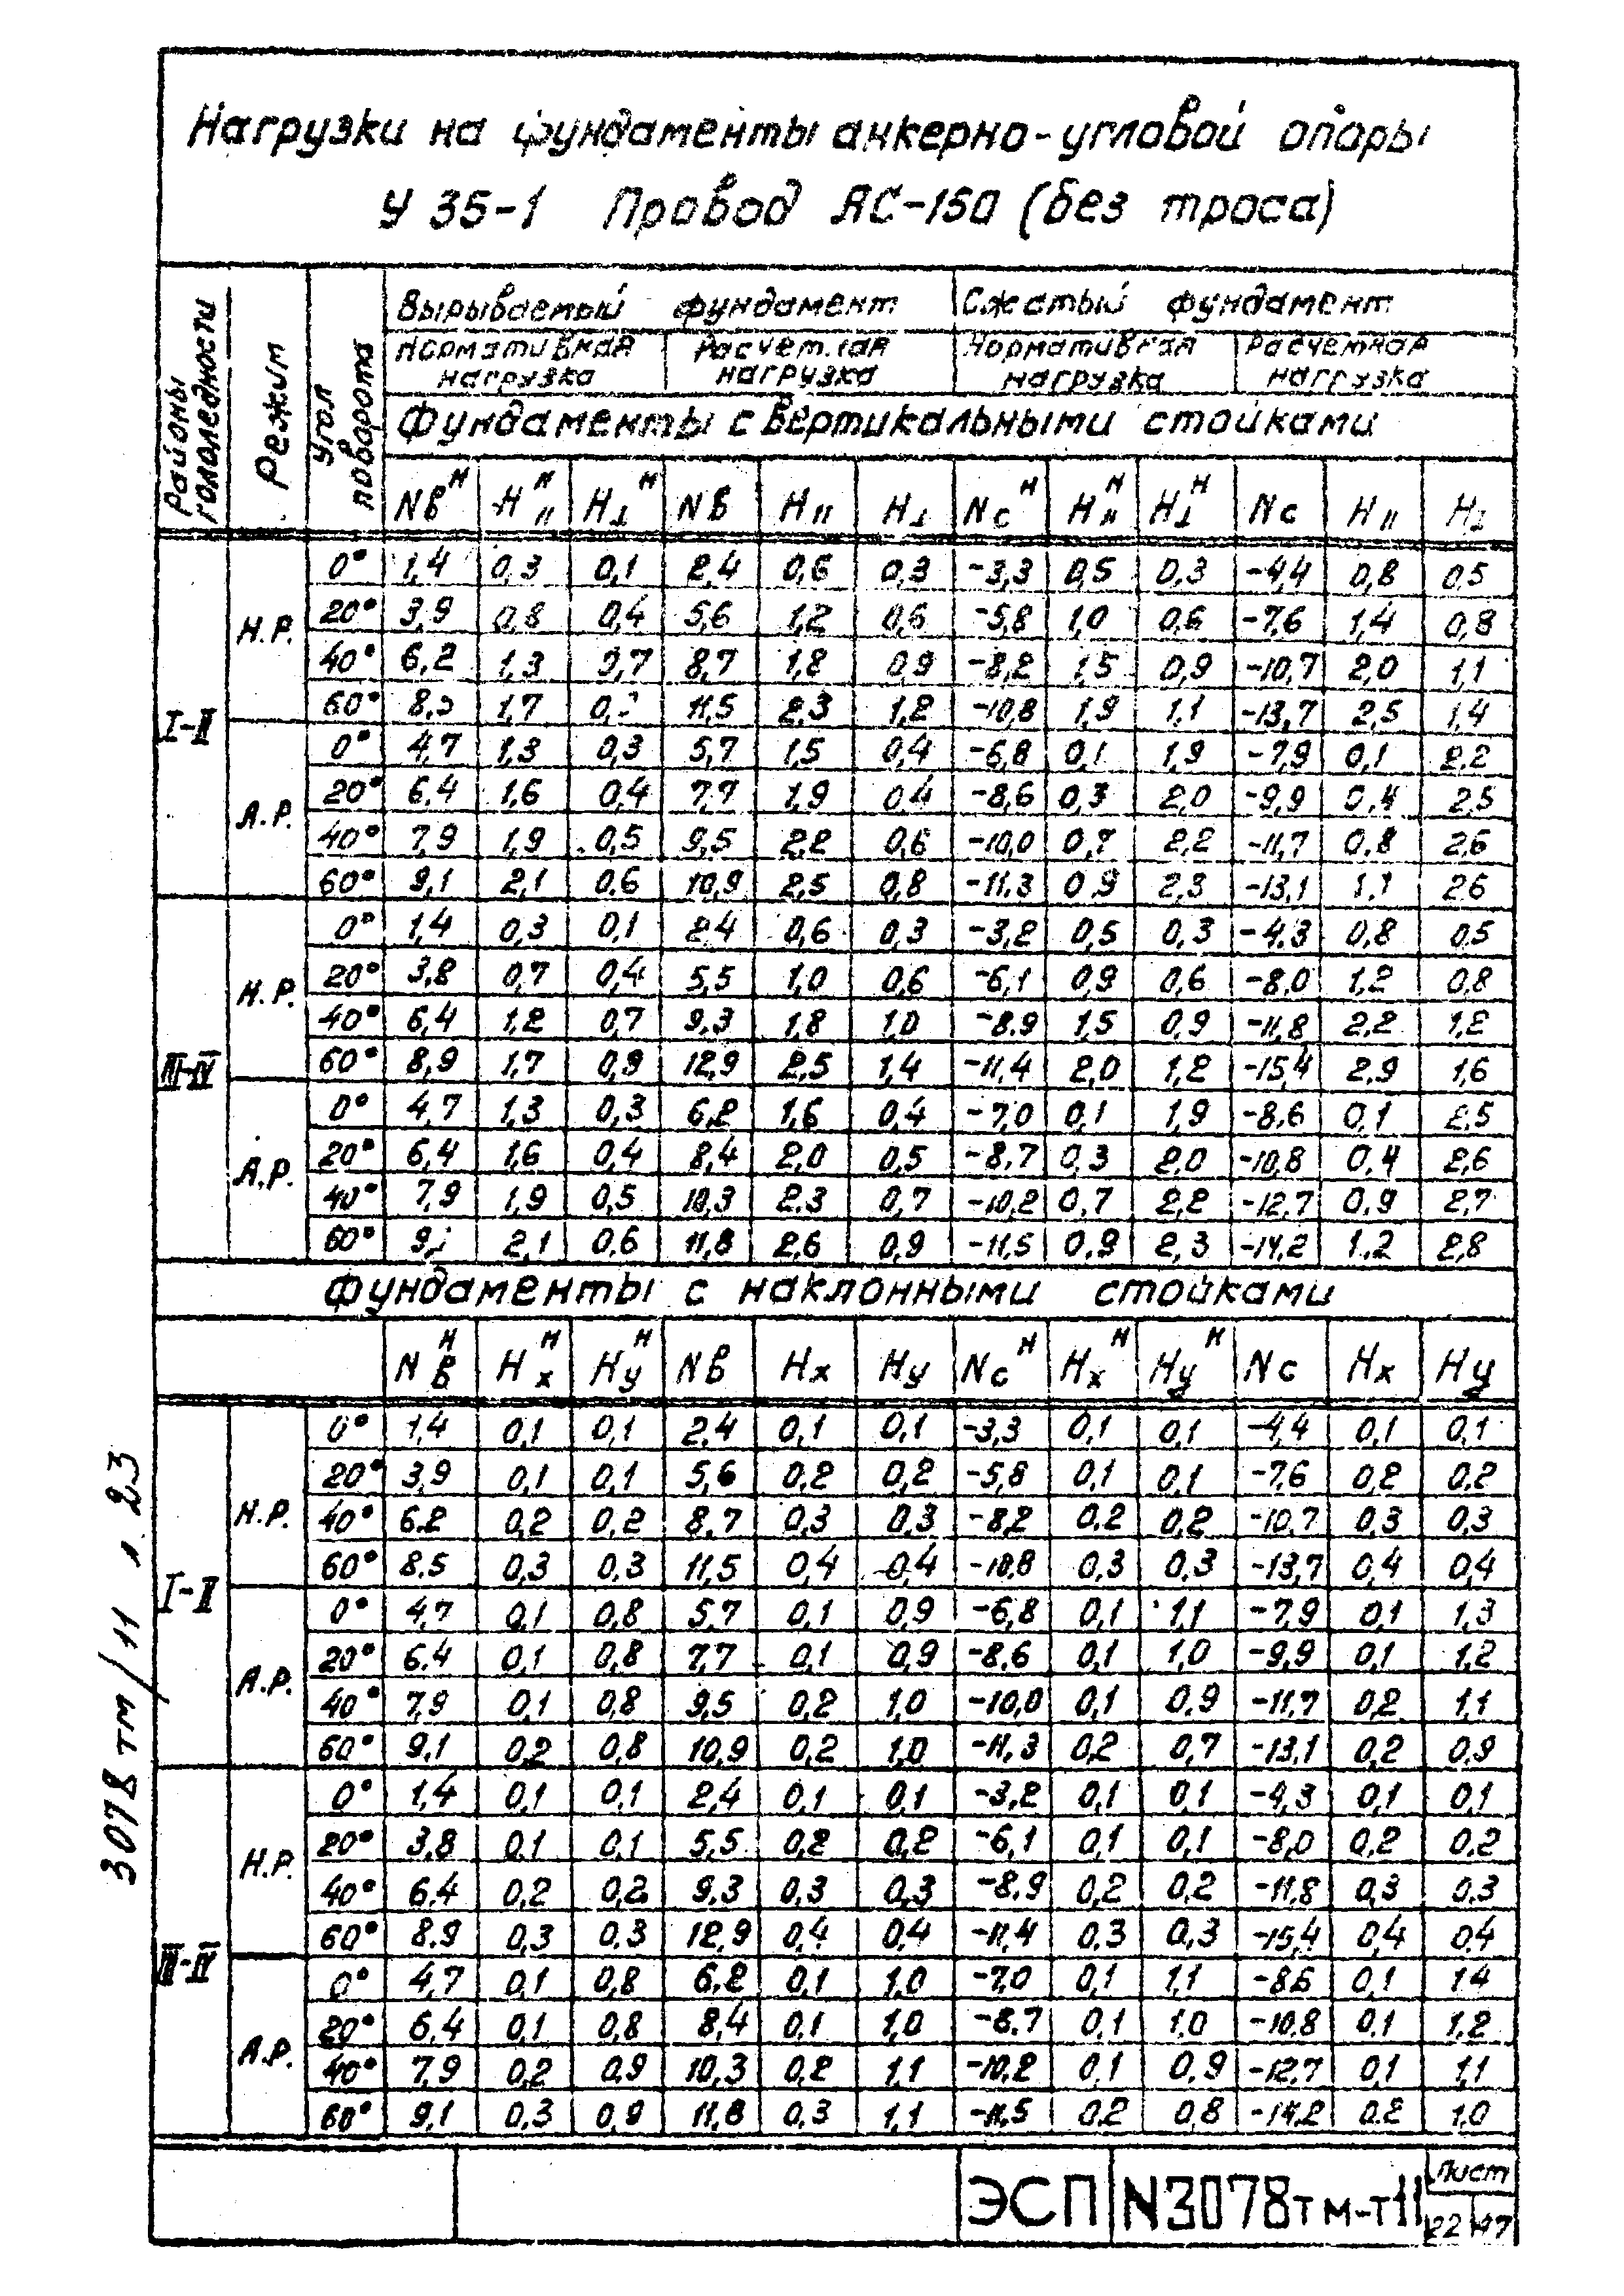 Нагрузки на фундаменты анкерно-угловой опоры
У 35-1 Провод АС-150 (без троса)
Районы гололедности Режим Угол поворота Вырываемый фундамент Сжатый фундамент
Нормативная нагрузка Расчетная нагрузка Нормативная нагрузка Расчетная нагрузка
Фундаменты с вертикальными стойками
Nв^н H||^н H⊥^н Nв H|| H⊥ Nc^н H||^н H⊥^н Nc H|| H⊥
I-II
Н.Р.
0° 1,4 0,3 0,1 2,4 0,6 0,3 -3,3 0,5 0,3 -4,4 0,8 0,5
20° 3,9 0,8 0,4 5,6 1,2 0,6 -5,8 1,0 0,6 -7,6 1,4 0,8
40° 6,2 1,3 0,7 8,7 1,8 0,9 -8,2 1,5 0,9 -10,7 2,0 1,1
60° 1,7 11,5 2,3 1,2 -10,8 1,9 1,1 -13,7 2,5 1,4
А.Р.
0° 4,7 1,3 0,3 5,7 1,5 0,4 -6,8 0,1 1,9 -7,9 0,1 2,2
20° 6,4 1,6 0,4 7,7 1,9 0,4 -8,6 0,3 2,0 -9,9 0,4 2,5
40° 7,9 1,9 0,5 9,5 2,2 0,6 -10,0 0,7 2,2 -11,7 0,8 2,6
60° 9,1 2,1 0,6 10,9 2,5 0,8 -11,3 0,9 2,3 -13,1 1,1 2,6
III-IV
Н.Р.
0° 1,4 0,3 0,1 2,4 0,6 0,3 -3,2 0,5 0,3 -4,3 0,8 0,5
20° 3,8 0,7 0,4 5,5 1,0 0,6 -6,1 0,9 0,6 -8,0 1,2 0,8
40° 6,4 1,2 0,7 9,3 1,8 1,0 -8,9 1,5 0,9 -11,8 2,2 1,2
60° 8,9 1,7 0,9 12,9 2,5 1,4 -11,4 2,0 1,2 -15,4 2,9 1,6
А.Р.
0° 4,7 1,3 0,3 6,2 1,6 0,4 -7,0 0,1 1,9 -8,6 0,1 2,5
20° 6,4 1,6 0,4 8,4 2,0 0,5 -8,7 0,3 2,0 -10,8 0,4 2,6
40° 7,9 1,9 0,5 10,3 2,3 0,7 -10,2 0,7 2,2 -12,7 0,9 2,7
60° 2,1 0,6 11,8 2,6 0,9 -11,5 0,9 2,3 -14,2 1,2 2,8
Фундаменты с наклонными стойками
Nв^н Hx^н Hу^н Nв Hx Hу Nc^н Hx^н Hу^н Nc Hx Hу
I-II
Н.Р.
0° 1,4 0,1 0,1 2,4 0,1 0,1 -3,3 0,1 0,1 -4,4 0,1 0,1
20° 3,9 0,1 0,1 5,6 0,2 0,2 -5,8 0,1 0,1 -7,6 0,2 0,2
40° 6,2 0,2 0,2 8,7 0,3 0,3 -8,2 0,2 0,2 -10,7 0,3 0,3
60° 8,5 0,3 0,3 11,5 0,4 0,4 -10,8 0,3 0,3 -13,7 0,4 0,4
А.Р.
0° 4,7 0,1 0,8 5,7 0,1 0,9 -6,8 0,1 1,1 -7,9 0,1 1,3
20° 6,4 0,1 0,8 7,7 0,1 0,9 -8,6 0,1 1,0 -9,9 0,1 1,2
40° 7,9 0,1 0,8 9,5 0,2 1,0 -10,0 0,1 0,9 -11,7 0,2 1,1
60° 9,1 0,2 0,8 10,9 0,2 1,0 -11,3 0,2 0,7 -13,1 0,2 0,9
III-IV
Н.Р.
0° 1,4 0,1 0,1 2,4 0,1 0,1 -3,2 0,1 0,1 -4,3 0,1 0,1
20° 3,8 0,1 0,1 5,5 0,2 0,2 -6,1 0,1 0,1 -8,0 0,2 0,2
40° 6,4 0,2 0,2 9,3 0,3 0,3 -8,9 0,2 0,2 -11,8 0,3 0,3
60° 8,9 0,3 0,3 12,9 0,4 0,4 -11,4 0,3 0,3 -15,4 0,4 0,4
А.Р.
0° 4,7 0,1 0,8 6,2 0,1 1,0 -7,0 0,1 1,1 -8,6 0,1 1,4
20° 6,4 0,1 0,8 8,4 0,1 1,0 -8,7 0,1 1,0 -10,8 0,1 1,2
40° 7,9 0,2 0,9 10,3 0,2 1,1 -10,2 0,1 0,9 -12,7 0,1 1,1
60° 9,1 0,3 0,9 11,8 0,3 1,1 -11,5 0,2 0,8 -14,2 0,2 1,0
3078 тм/11 л.23
ЭСП N3078тм-т11 Лист
22 47